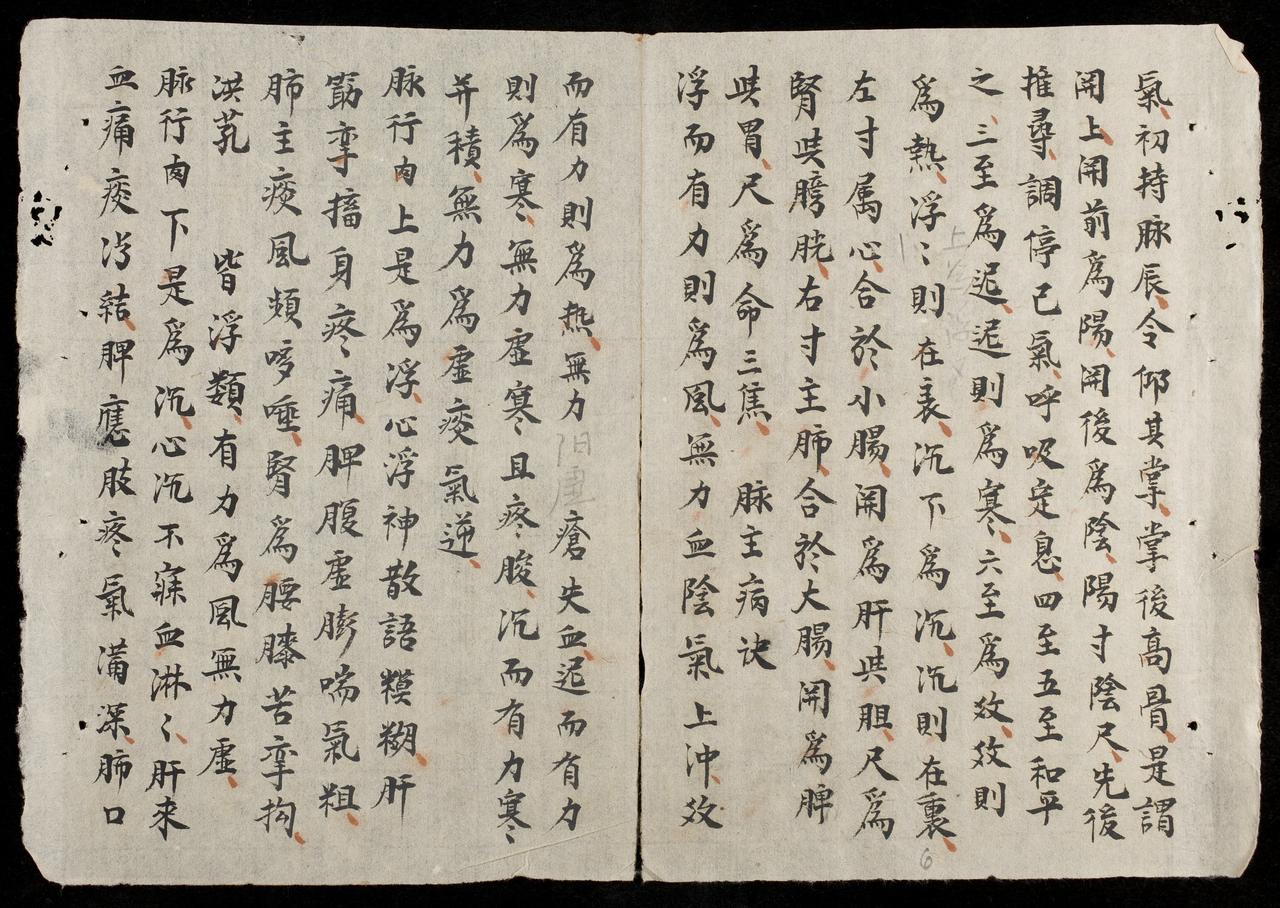 氣、初持脉辰、令仰其掌、掌後高骨、是謂
関上、関前爲陽、関後爲陰、陽寸陰尺、先後
推尋、調停己氣、呼吸定息、四至五至和平
之、三至爲迟、迟則爲寒、六至爲效、效則
爲熱、浮〻則在表、沉下爲沉、沉則在裏、
左寸属心、合於小腸、関爲肝共胆、尺爲
腎共膀胱、右寸主肺、合於大腸、関爲脾
共胃、尺爲命三焦、 脉主病诀
浮而有力則爲風、無力血陰氣上冲、效
而有力則爲熱、無力瘡失血、迟而有力
則爲寒、無力虚寒、且疼酸、沉而有力寒
并積、無力爲虚痰氣逆、
脉行肉上是爲浮、心浮神散語糢糊、肝
筋孪搐身疼痛、脾腹虚膨喘氣粗、
肺主痰風頻哆唾、腎爲腰膝苦孪拘、
洪芤 皆浮類、有力爲風無力虚、
脉行肉下是爲沉、心沉不寐血淋〻、肝来
血痛痰涝結、脾應肢疼氣满深、肺口
6